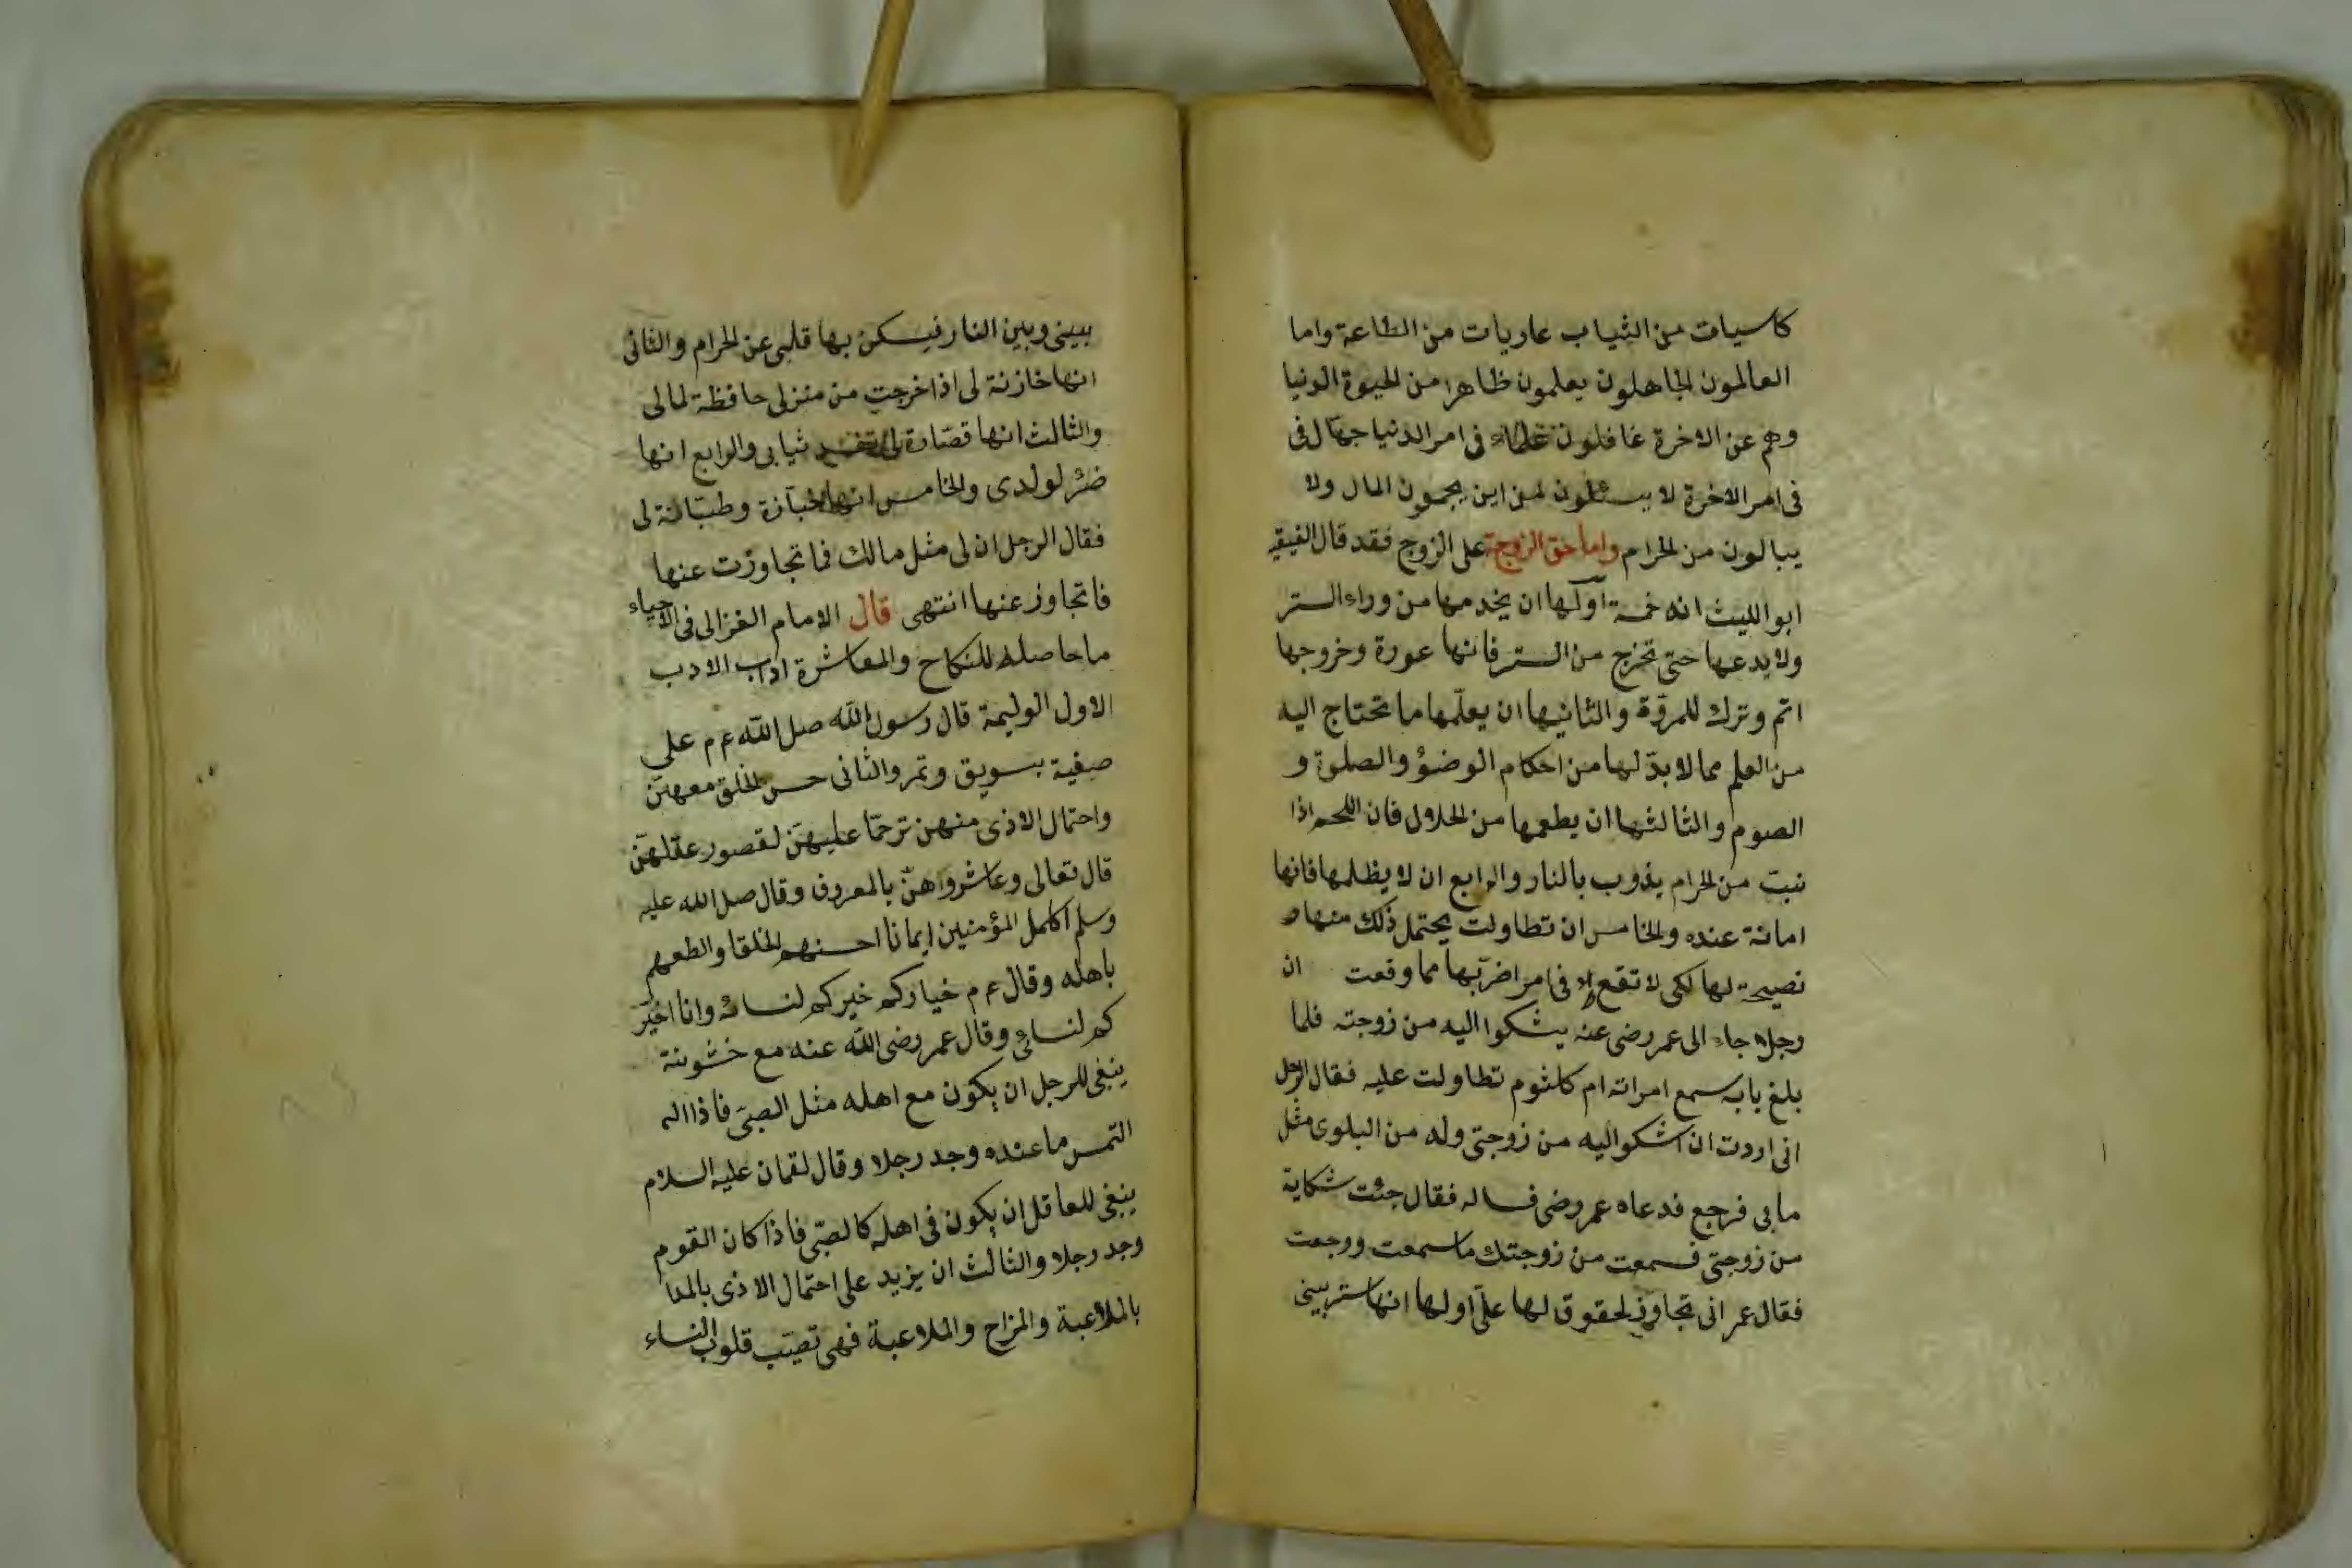 كاسيات من الثياب عاريات من الطاعة واما
العالمون الجاهلون يعلمون ظاهرا من الحيوة الدنيا
وهم عن الاخرة غافلون علماء فى امر الدنيا جهال فى
فى امر الاخرة لا يسئلون من اين يجمون المال ولا
يبالون من الحرام واما حق الزوجة على الزوج فقد قال الفيقه
ابو الليث انه خمسة اولها ان يخدمها من وراء الستر
ولا يدعها حتى تخرج من الستر فانها عورة وخروجها
اثم وترك للمروّة والثانيها ان يعلّمها ما تحتاج اليه
من العلم مما لا بدّ لها من احكام الوضؤ والصلوة و
الصوم والثالثها ان يطعمها من الحلال فان اللحم اذا
نبت من الحرام يذوب بالنار والرابع ان لا يظلمها فانها
امانة عنده والخامس ان تطاولت يحتمل ذلك منها
نصيحة لها لكى لا تقع فى امر اضرّ بها مما وقعت ان
رجلا جاء الى عمر رضى عنه يشكوا اليه من زوجته فلما
بلغ بابه سمع امراته ام كلثوم تطاولت عليه فقال الرجل
انى اردت ان اشكو اليه من زوجتى وله من البلوى مثل
ما بى فرجع فدعاه عمر رضى فساله فقال جئت شكاية
من زوجتى فسمعت من زوجتك ما سمعت ورجعت
فقال عمر انى تجاوز لحقوق لها علىّ اولها انها ستر بينى
بينى وبين النار فيسكن بها قلبى عن الحرام والثانى
انها خازنة لى اذا خرجت من منزلى حافظة لمالى
والثالث انها قصّارة لى ثيابى والرابع انها
ضئر لولدى والخامس انها خبّازة وطبّاخة لى
فقال الرجل ان لى مثل مالك فما تجاوزت عنها
فاتجاوز عنها انتهى قال الامام الغزالى فى الاحياء
ما حاصله للنكاح والمعاشرة اداب الادب
الاول الوليمة قال رسول الله صل الله ع م على
صفية بسويق وتمر والثانى حسن الخلق معهنّ
واحتمال الاذى منهن ترحّما عليهنّ لقصور عقلهنّ
قال تعالى وعاشرواهنّ بالمعروف وقال صل الله عليه
وسلم اكمل المؤمنين ايمانا احسنهم الخلقا والطعهم
باهله وقال ع م خياركم خيركم لنسائه وانا اخير
كم لنسائى وقال عمر رضى الله عنه مع خشونته
ينبغى للرجل ان يكون مع اهله مثل الصبّى فاذا اله
التمس ما عنده وجد رجلا وقال لقمان عليه السلام
ينبغى للعاقل ان يكون فى اهله كالصبّى فاذا كان القوم
وجد رجلا والثالث ان يزيد على احتمال الاذى بالمدا
بالملاعبة والمزاح والملاعبة فهى تصيّب قلوب النساء